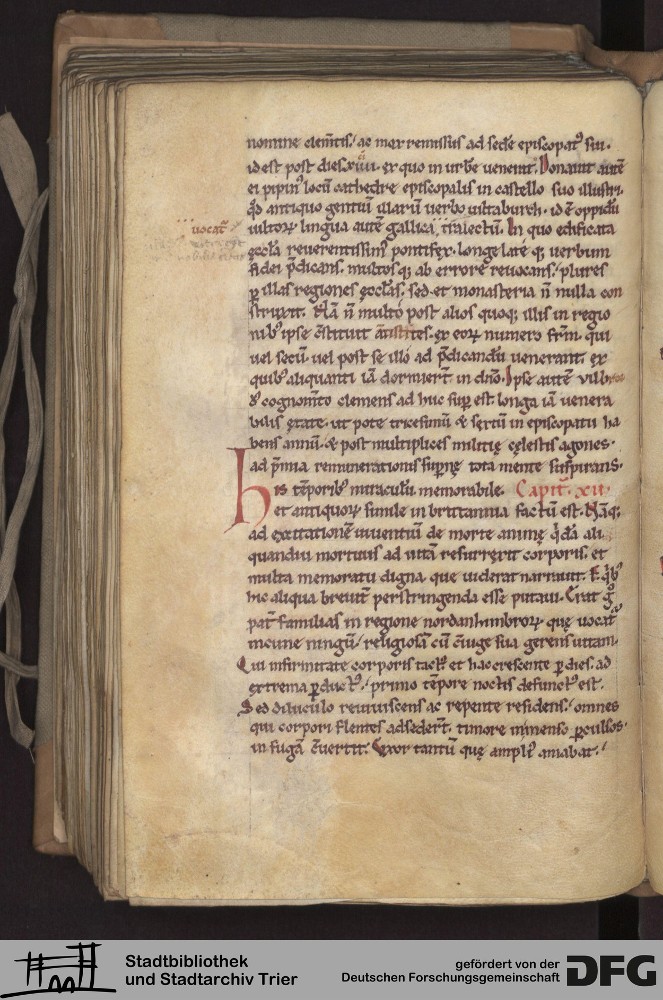 nomine clem̄tis,' ac mox remissus ad sedē episcopatꝰ sui.
id est post dies xiiii. ex quo in urbē venerat. Donauit autē
ei pipinꝰ locū cathedre episcopalis in castello suo illustri.
qd̄ antiquo gentiū illarū verbo uiltaburh. id ē oppidū
uiltoꝝ lingua autē gallica, traiectū. In quo edificata
ęccl̄a reuerentissimꝰ pontifex. longe lateq; uerbum
fidei p̄dicans. multosq; ab errore reuocans,' plures
ꝑ illas regiones ęccl̄as. sed et monasteria n̄ nulla con
struxit. Nā n̄ multo post alios quoq; illis in regio
nibꝰ ipse c̄stituit antistites. ex eoꝝ numero frm̄. qui
uel secū uel post se illo ad p̄dicandū uenerant. ex
quibꝰ aliquanti iā dormier̄t in dn̄o. Ipse autē vilbror
d' cognom̄to clemens ad huc suꝑ est. longa iā uenera
bilis ętate. ut pote tricesimū & sextū in episcopatu ha
bens annū. & post multiplices militię cęlestis agones.
ad p̄mia remunerationis suꝑnę tota mente suspirans.
his tēporibꝰ miraculū memorabile. Capitl̄. xii.
et antiquoꝝ simile in brittannia factū est. Nāq;
ad excitationē viuentiū de morte animę q̄dā ali
quandiu mortuus ad uitā resurrexit corporis. et
multa memoratu digna que uiderat narrauit. E q̄bꝰ
hic aliqua breuit̄ perstringenda esse putaui. Erat g̊
pat̄ familias in regione nordanhimbroꝝ que uocat̄
incune ningū,' religiosā cū c̄iuge sua gerens uitam.
Qui infirmitate corporis tactꝰ et hac crescente ꝑ dies. ad
extrema ꝑductꝰ,' primo tēpore noctis defunctꝰ est.
Sed diluculo reuiuiscens ac repente residens,' omnes
qui corpori flentes adseder̄t. timore inmenso ꝑculsos.
in fugā c̄uertit. Uxor tantū que ampliꝰ amabat,'
uocat̄
Stadtbibliothek
und Stadtarchiv Trier
gefördert von der
Deutschen Forschungsgemeinschaft
DFG